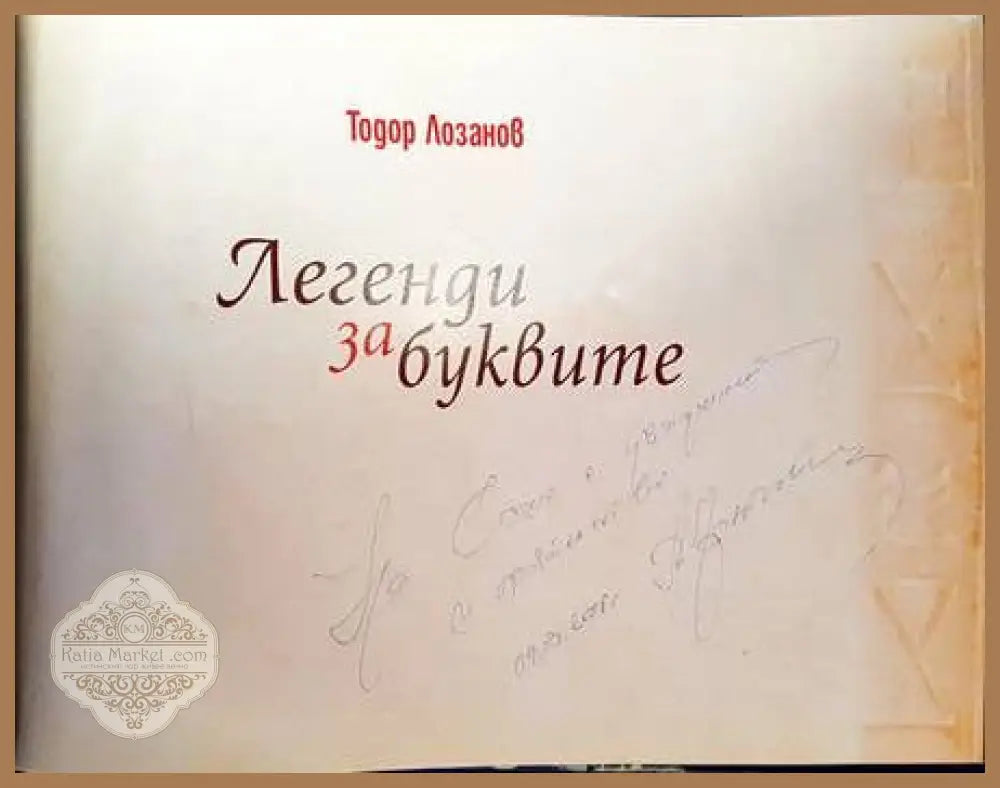 Тодор Лозанов
Легенди
за буквите
На с уважение
и приятелство
KM
Katia Market .com